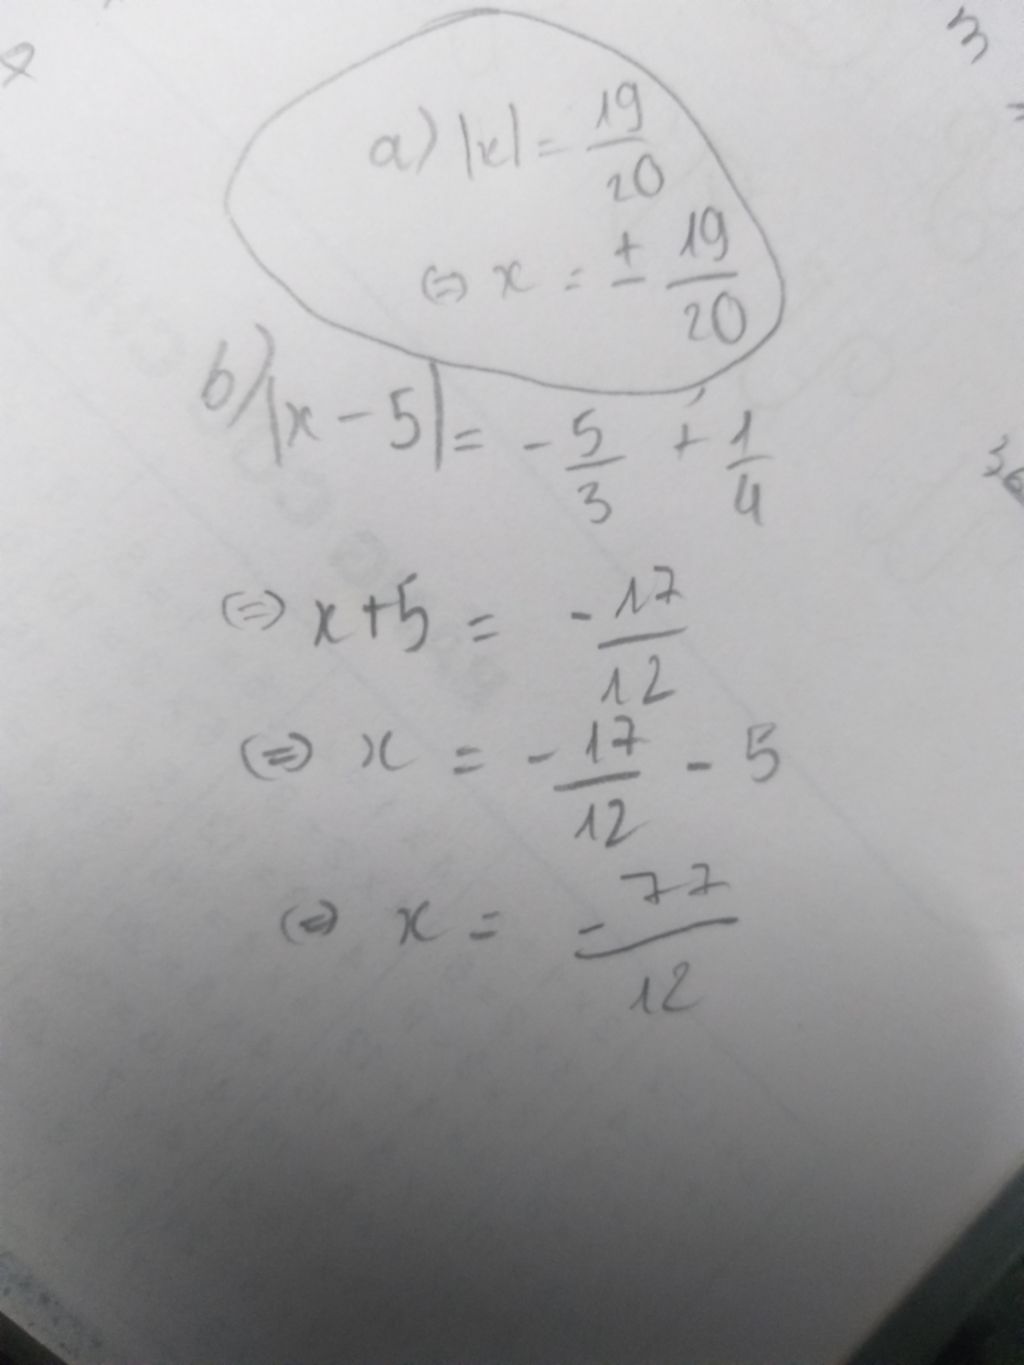 a) |x| = 19/20
⇔ x = ± 19/20
b) |x - 5| = - 5/3 + 1/4
⇔ x + 5 = - 17/12
⇔ x = - 17/12 - 5
⇔ x = - 77/12
3